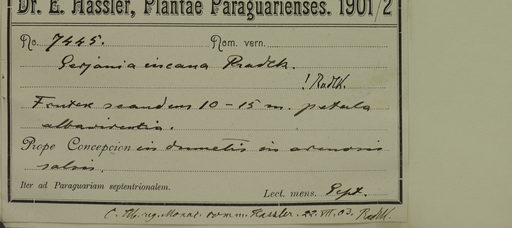 Dr. E. Hassler, Plantae Paraguarienses. 1901/2
No. 7445. Nom. vern.
Serjania incana Radlk.
! Radlk.
Frutex scandens 10-15 m. petala
albavirentia.
Prope Concepcion in dumetis in arenosis
salsis.
Iter ad Paraguariam septentrionalem. Lect. mens. Sept.
C. Hb. reg. Monac. comm. Hassler. 23. VII. 03. Radlk.